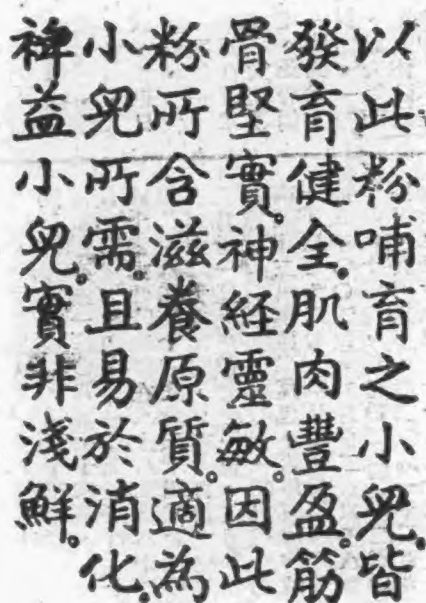 以此粉哺育之小兒。皆
發育健全。肌肉豐盈。筋
骨堅實。神経靈敏。因此
粉所含滋養原質。適為
小兒所需。且易於消化。
裨益小兒。實非淺鮮。